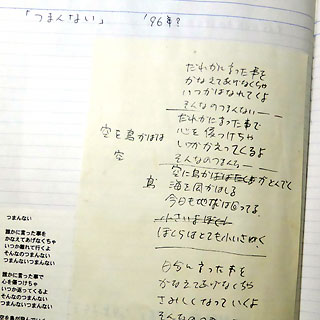 「つまんない」 '96年?
だれかに言った事を
かなえてあげなくちゃ
いつかはなれてくよ
そんなのつまんない
だれかに言った事で
心を傷つけちゃ
いつかかえってくるよ
そんなのつまんな
空を鳥がはば
空
空に鳥が がとんでく
鳥
海を
今日も地球は回ってる
ぼくらはとても小さく
自分に言った事を
かなえてあげなくちゃ
さみしくなっていくよ
そんなの
つまんない
誰かに言った事を
かなえてあげなくちゃ
いつか離れて行くよ
そんなのつまんない
つまんないつまんない
誰かに言った事で
心を傷つけちゃ
いつか返ってくるよ
そんなのつまんない
つまんないつまんない
空を鳥が飛んでい